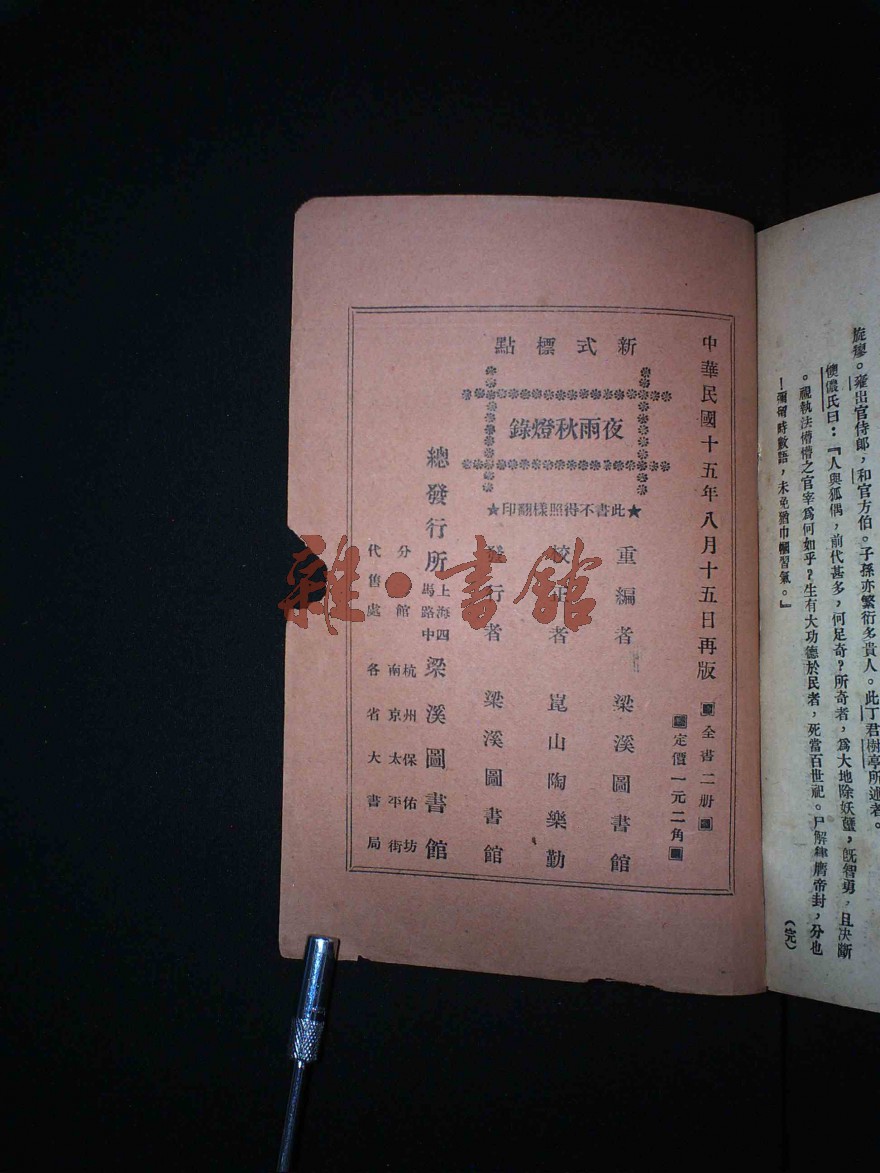 旋瘳。薙出官侍郎，和官方伯。子孫亦繁衍多貴人。此丁君樹亭所述者。
懊儂氏曰：『人與狐偶，前代甚多，何足奇？所奇者，爲大地除妖蠥，旣智勇，且決斷
。視執法懵懵之官宰爲何如乎？生有大功德於民者，死當百世祀。尸解肆膺帝封，分也
！彌留時數語，未免猶巾幗習氣。』
（完）
中華民國十五年八月十五日再版
全書二册
定價一元二角
新式標點
夜雨秋燈錄
★此書不得照樣翻印★
重編者 梁溪圖書館
校正者 崑山陶樂勤
發行者 梁溪圖書館
總發行所 上海四馬路中 梁溪圖書館
分館 杭州保佑坊
南京太平街
代售處 各省大書局
雜·書館